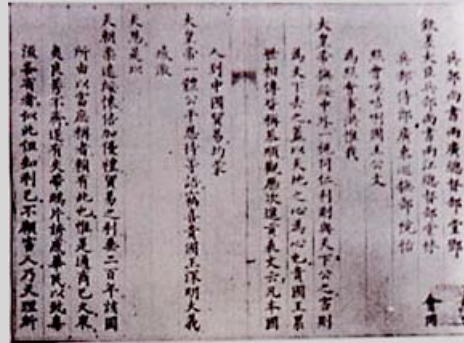 兵部尚書兩廣總督部堂鄧
欽差大臣兵部尚書兩江總督部堂林
會同
兵部侍郎廣東巡撫部院怡
照會𠸄咭唎國王公文
為照會事洪惟我
大皇帝撫綏中外一視同仁利則與天下公之害則
為天下去之蓋以天地之心為心也貴國王累
世相傳皆稱恭順觀歷次進貢表文云凡本國
人到中國貿易均蒙
大皇帝一體公平恩待等語竊喜貴國王深明大義
感激
天恩是以
天朝柔遠綏懷倍加優禮貿易之利垂二百年該國
所由以富庶稱者賴有此也惟是通商已久衆
夷良莠不齊遂有夾帶鴉片誘惑華民以致毒
流各省者似此但知利己不顧害人乃天理所